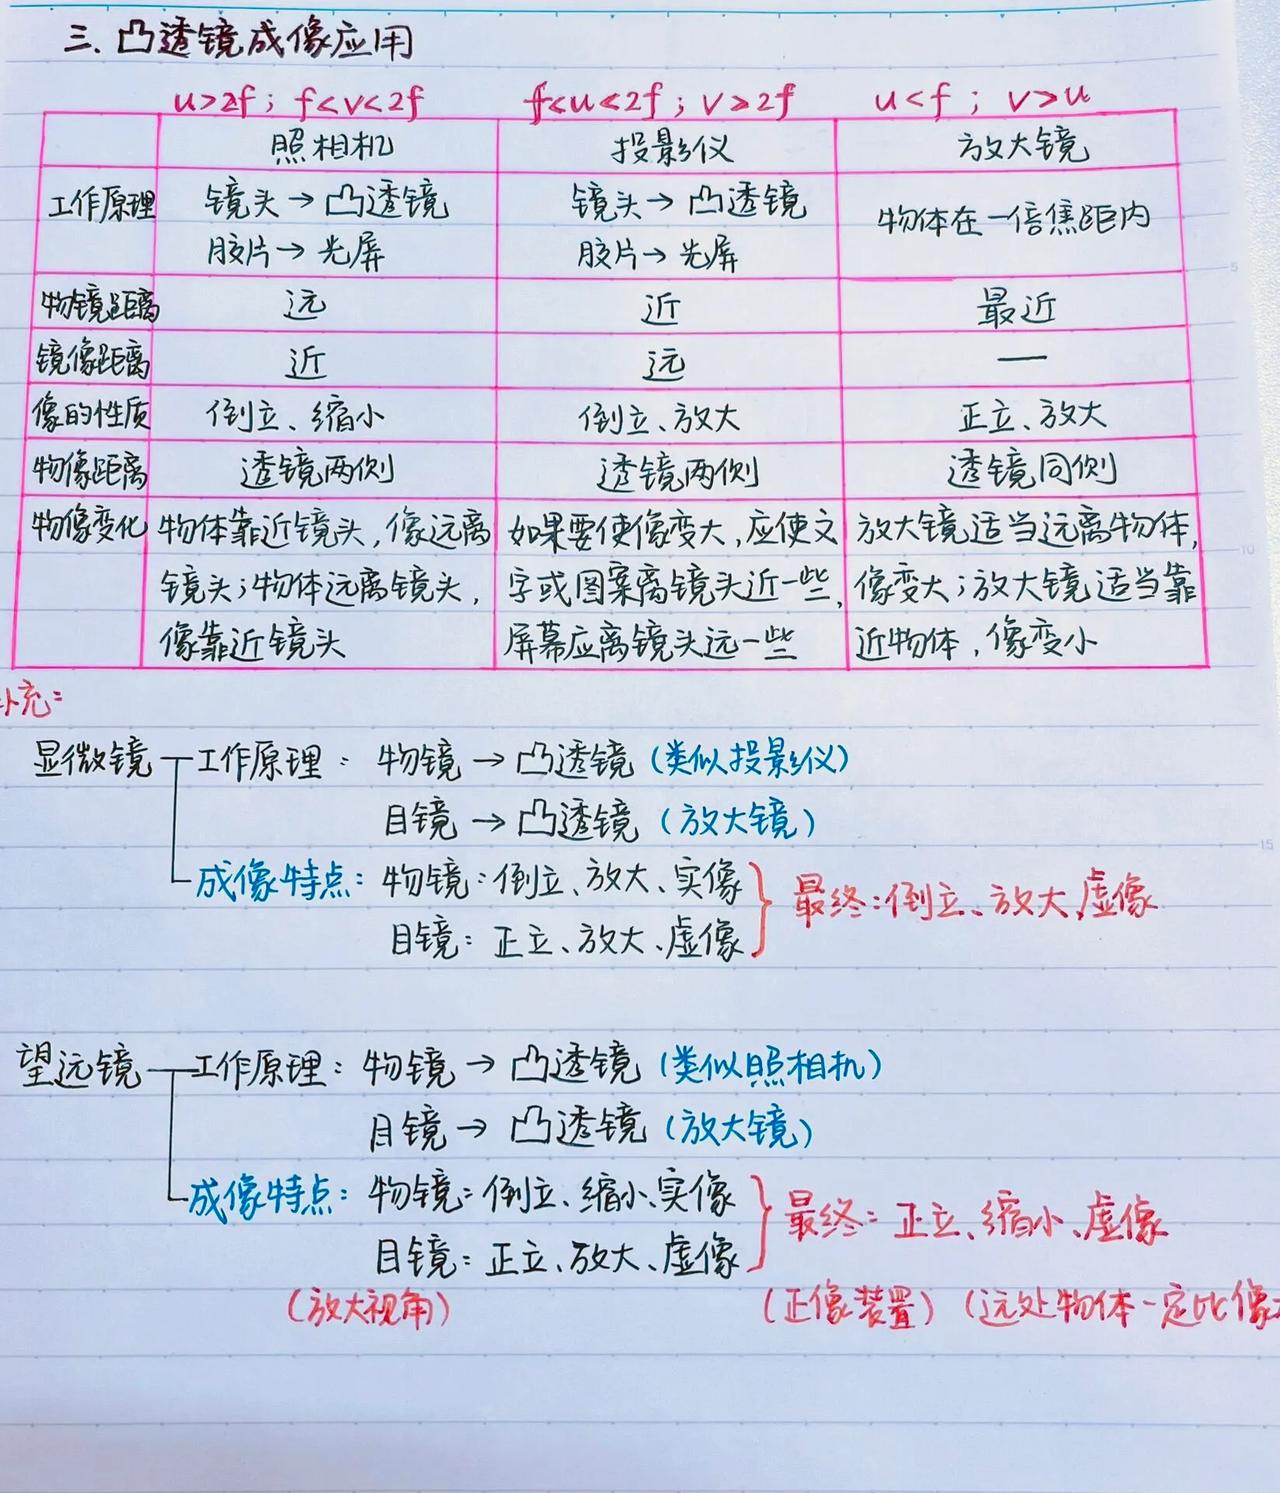 三.凸透镜成像应用
u>2f；f<v<2f f<u<2f；v>2f u<f；v>u
照相机 投影仪 放大镜
工作原理 镜头→凸透镜 镜头→凸透镜 物体在一倍焦距内
胶片→光屏 胶片→光屏
物镜距离 远 近 最近
镜像距离 近 远 —
像的性质 倒立、缩小 倒立、放大 正立、放大
物像距离 透镜两侧 透镜两侧 透镜同侧
物像变化 物体靠近镜头,像远离 如果要使像变大,应使文 放大镜适当远离物体,
镜头；物体远离镜头, 字或图案离镜头近一些, 像变大；放大镜适当靠
像靠近镜头 屏幕应离镜头远一些 近物体,像变小
补充：
显微镜 工作原理：物镜→凸透镜(类似投影仪)
目镜→凸透镜(放大镜)
成像特点：物镜：倒立、放大、实像 最终：倒立、放大、虚像
目镜：正立、放大、虚像
望远镜 工作原理：物镜→凸透镜(类似照相机)
目镜→凸透镜(放大镜)
成像特点：物镜：倒立、缩小、实像 最终：正立、缩小、虚像
目镜：正立、放大、虚像
(放大视角) (正像装置) (远处物体一定比像